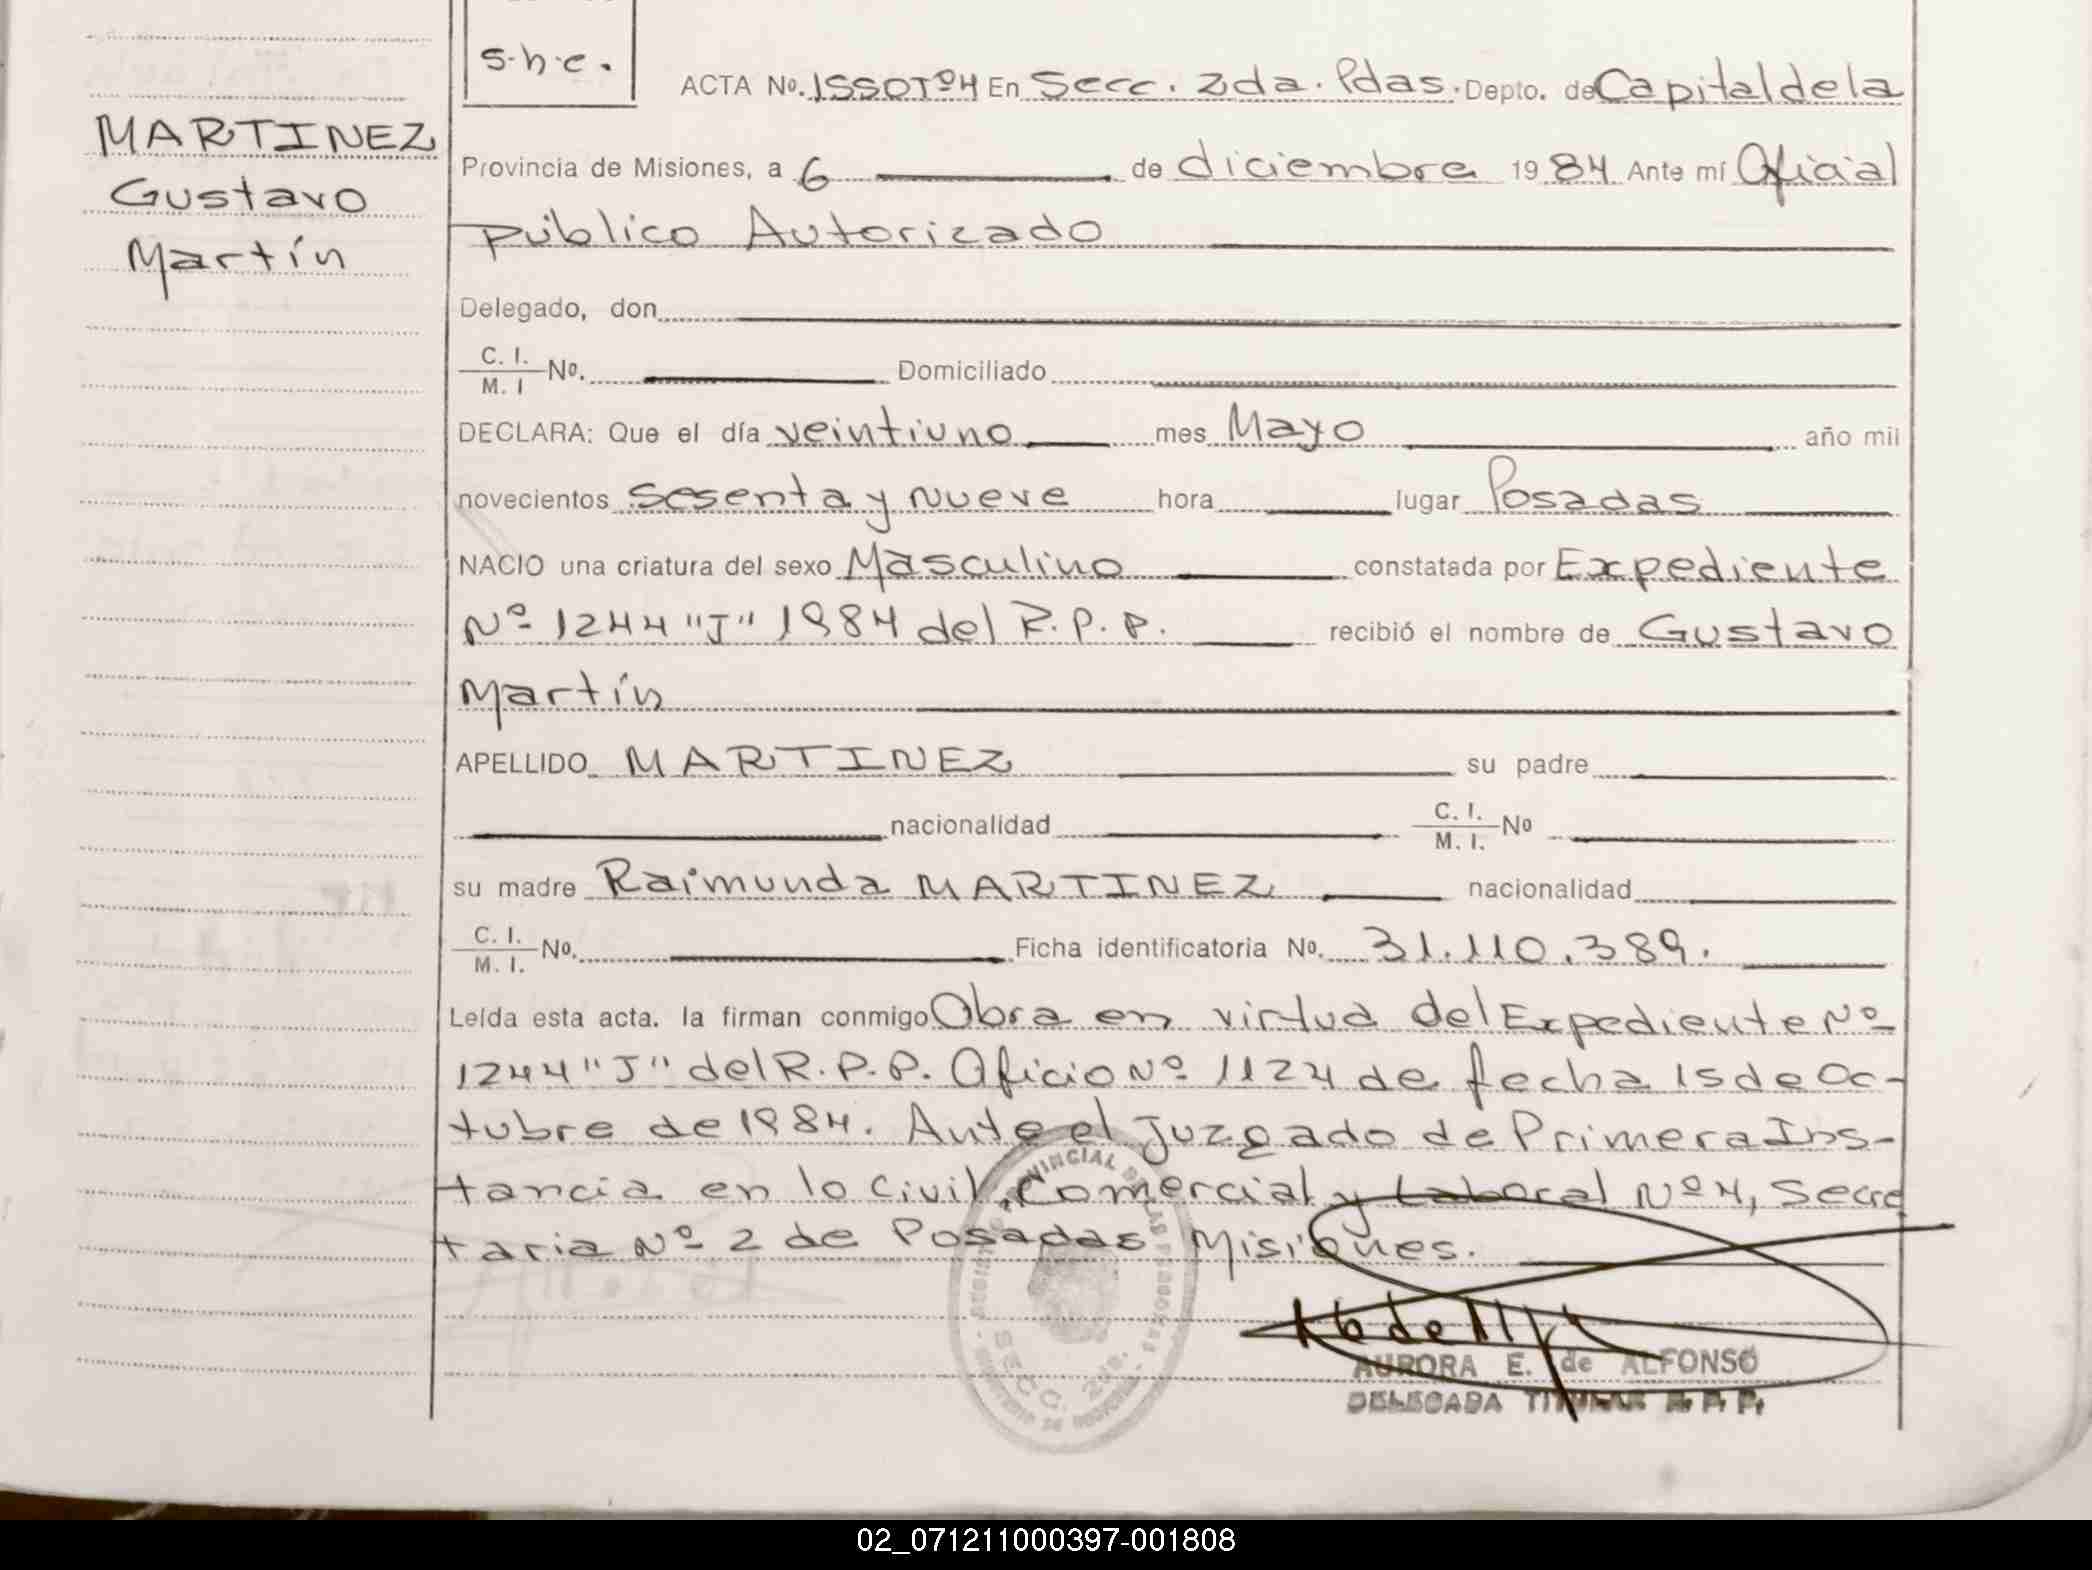 s.h.c.
ACTA No. 1550Tº4 En Secc. 2da. Pdas. Depto. de Capital de la
MARTINEZ
Gustavo
Martín
Provincia de Misiones, a 6 de diciembre 1984 Ante mí Oficial
público Autorizado
Delegado, don
C. I.
M. I No. Domiciliado
DECLARA: Que el día veintiuno mes Mayo año mil
novecientos sesenta y nueve hora lugar Posadas
NACIO una criatura del sexo Masculino constatada por Expediente
Nº 1244 "J" 1984 del R.P.P. recibió el nombre de Gustavo
Martín
APELLIDO MARTINEZ su padre
nacionalidad C. I.
M. I. No
su madre Raimunda MARTINEZ nacionalidad
C. I.
M. I. No. Ficha identificatoria No. 31.110.389.
Leída esta acta. la firman conmigo Obra en virtud del Expediente Nº
1244 "J" del R.P.P. Oficio Nº 1124 de fecha 15 de Oc-
tubre de 1984. Ante el Juzgado de Primera Ins-
tancia en lo Civil, Comercial y Laboral Nº 4, Secre
taria Nº 2 de Posadas Misiones.
SECC. 2da.
AURORA E. de ALFONSO
DELEGADA TITULAR R. P. P.
02_071211000397-001808